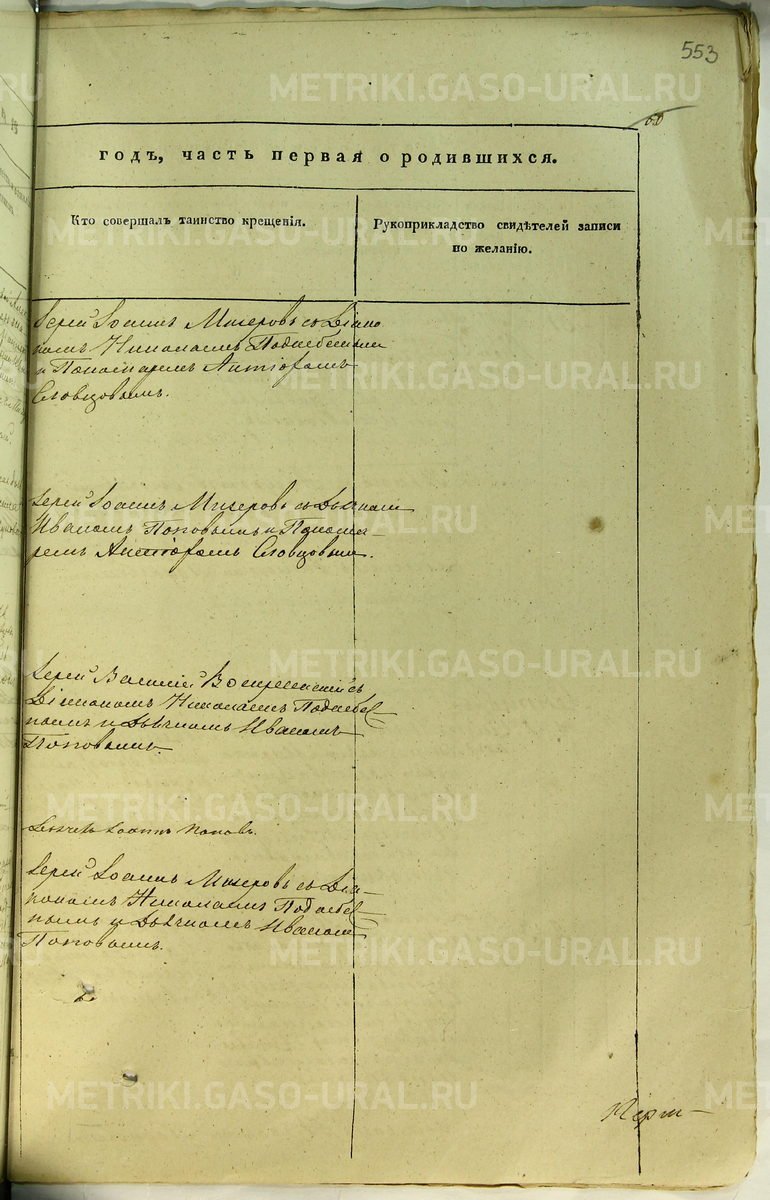 553
60
годъ, часть первая о родившихся.
Кто совершалъ таинство крещенія.
Рукоприкладство свидѣтелей записи
по желанію.
Іерей Іоаннъ Мизеровъ съ Діако
номъ Николаемъ Поднебеснымъ
и Пономаремъ Антіофомъ
Словцовымъ.
Іерей Іоаннъ Мизеровъ съ Дьячкомъ
Иваномъ Поповымъ и Понома-
ремъ Антіофомъ Словцовымъ.
Іерей Василій Воскресенскій съ
Діакономъ Николаемъ Поднебес-
нымъ и Дьячкомъ Иваномъ
Поповымъ.
Дьячекъ Іоаннъ Поповъ.
Іерей Іоаннъ Мизеровъ съ Діа-
кономъ Николаемъ Поднебес-
нымъ и Дьячкомъ Иваномъ
Поповымъ.
METRIKI.GASO-URAL.RU